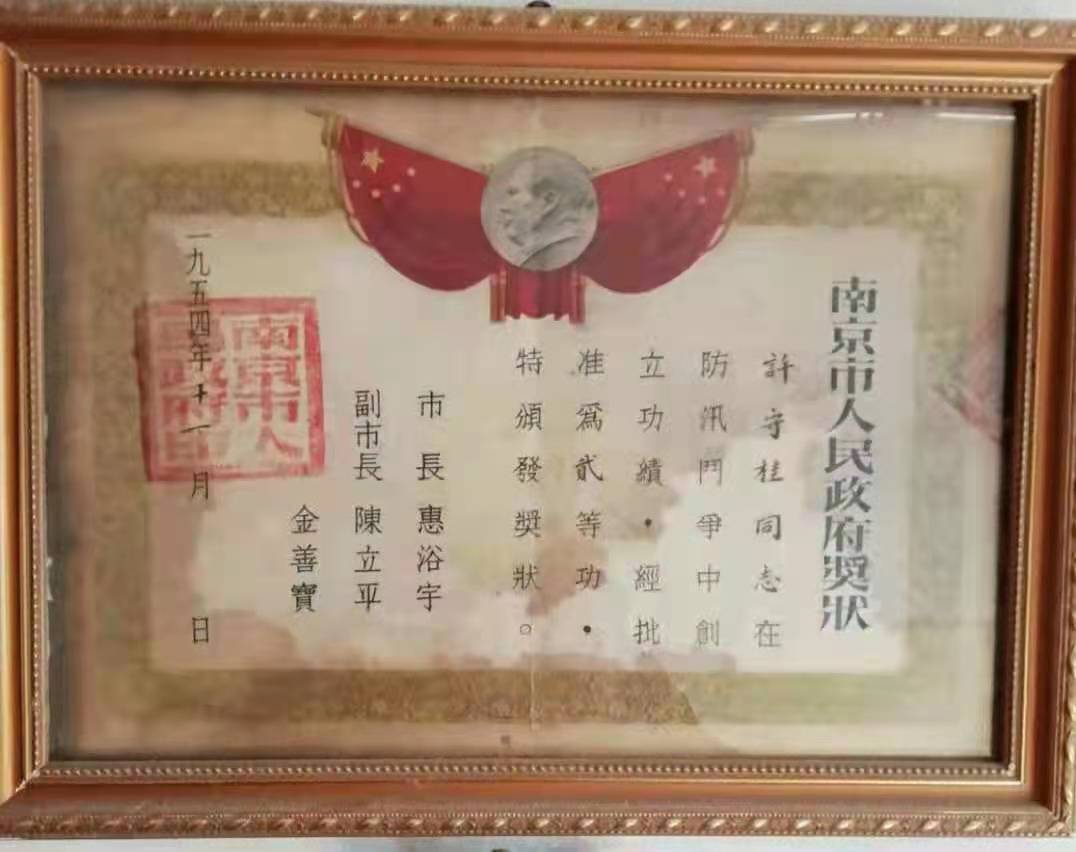 南京市人民政府奬狀
許守桂同志在
防汛鬥爭中創
立功績·經批
准爲貳等功·
特頒發奬狀。
市長惠浴宇
副市長陳立平
金善寶
一九五四年十一月 日
南京市人